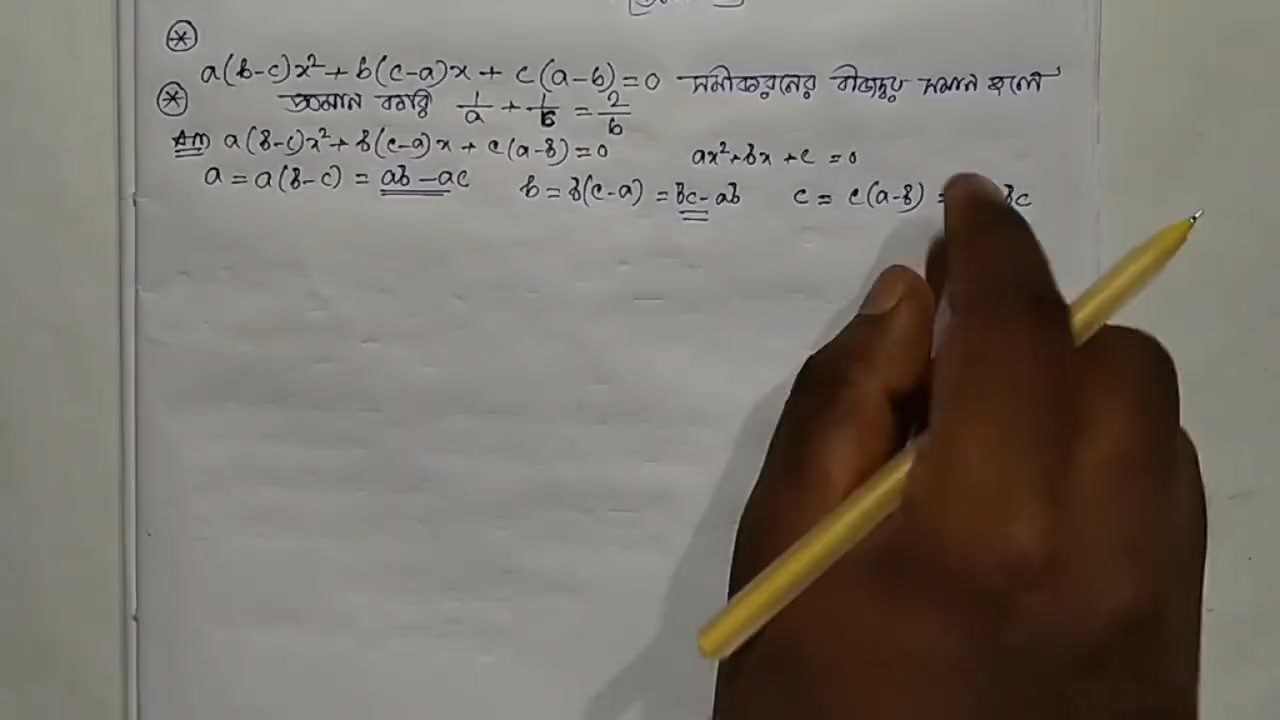 a(b-c)x²+b(c-a)x + c(a-b)=0 সমীকরনের বীজদ্বয় সমান হলে
প্রমান করি 1/a + 1/b = 2/b
Ans a(b-c)x²+b(c-a)x + c(a-b)=0 ax²+bx+c=0
a = a(b-c) = ab-ac b = b(c-a) = bc-ab c = c(a-b) = bc